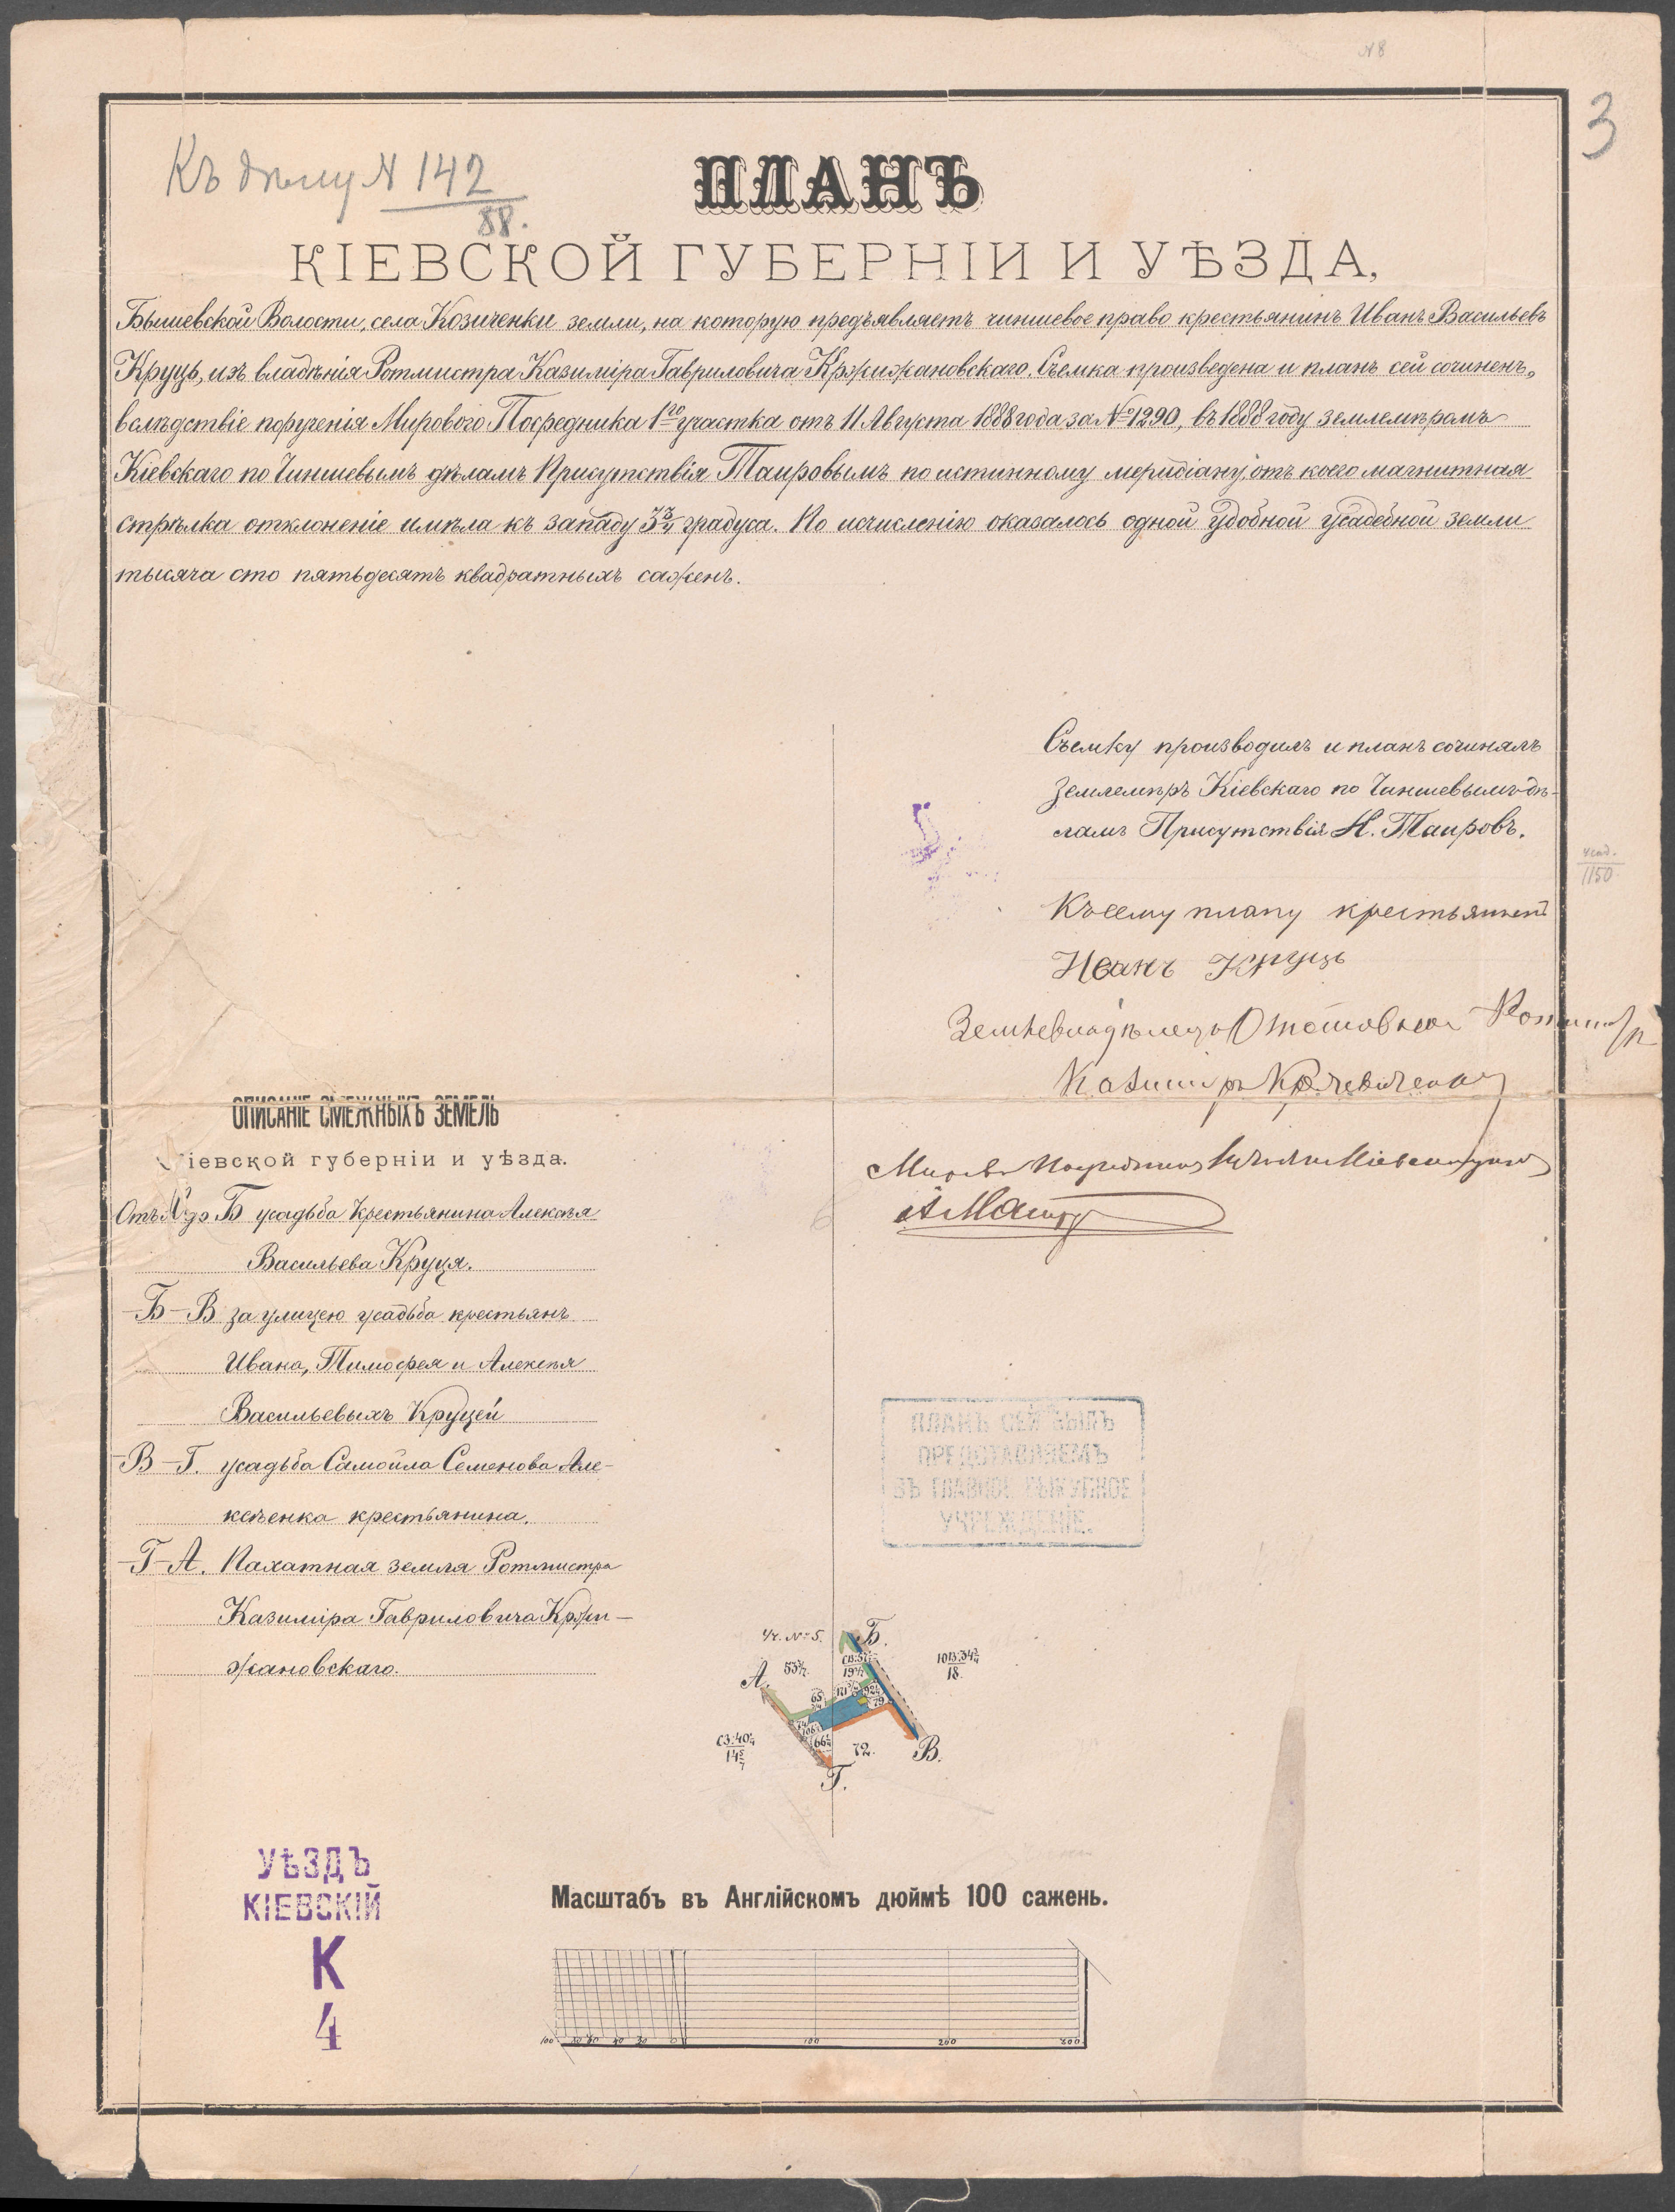 № 8
3
Къ дѣлу № 142
88.
ПЛАНЪ
КІЕВСКОЙ ГУБЕРНІИ И УѢЗДА,
Бышевской Волости, села Козиченки земли, на которую предъявляетъ чиншевое право крестьянинъ Иванъ Васильевъ
Круць, изъ владѣнія Ротмистра Казиміра Гавриловича Кржижановскаго. Съемка произведена и планъ сей сочиненъ,
вслѣдствіе порученія Мирового Посредника 1го участка отъ 11 Августа 1888 года за № 1290, въ 1888 году землемѣромъ
Кіевскаго по Чиншевымъ дѣламъ Присутствія Таировымъ по истинному меридіану, отъ коего магнитная
стрѣлка отклоненіе имѣла къ западу 3 3/4 градуса. По исчисленію оказалось одной удобной усадебной земли
тысяча сто пятьдесятъ квадратныхъ сажень.
Съемку производилъ и планъ сочинялъ
Землемѣръ Кіевскаго по Чиншевымъ дѣ-
ламъ Присутствія Н. Таировъ.
усад.
1150
Къ сему плану крестьянинъ
Иванъ Круць
Землевладѣлецъ
Казимиръ
ОПИСАНІЕ СМЕЖНЫХЪ ЗЕМЕЛЬ
іевской губерніи и уѣзда.
Отъ А до Б усадьба крестьянина Алексѣя
Васильева Круця.
–Б–В за улицею усадьба крестьянъ
Ивана, Тимофея и Алексѣя
Васильевыхъ Круцей
–В–Г. усадьба Самойла Семенова Але-
ксѣенка крестьянина.
–Г–А. Пахатная земля Ротмистра
Казиміра Гавриловича Кржи–
жановскаго.
ПЛАНЪ СЕЙ БЫЛЪ
ПРЕДСТАВЛЯЕМЪ
ВЪ ГЛАВНОЕ ВЫКУПНОЕ
УЧРЕЖДЕНІЕ.
Уч. № 5.
Б.
А.
72.
В.
Г.
УѢЗДЪ
КІЕВСКІЙ
К
4
Масштабъ въ Англійскомъ дюймѣ 100 сажень.
100 80 60 40 20 0 100 200 300